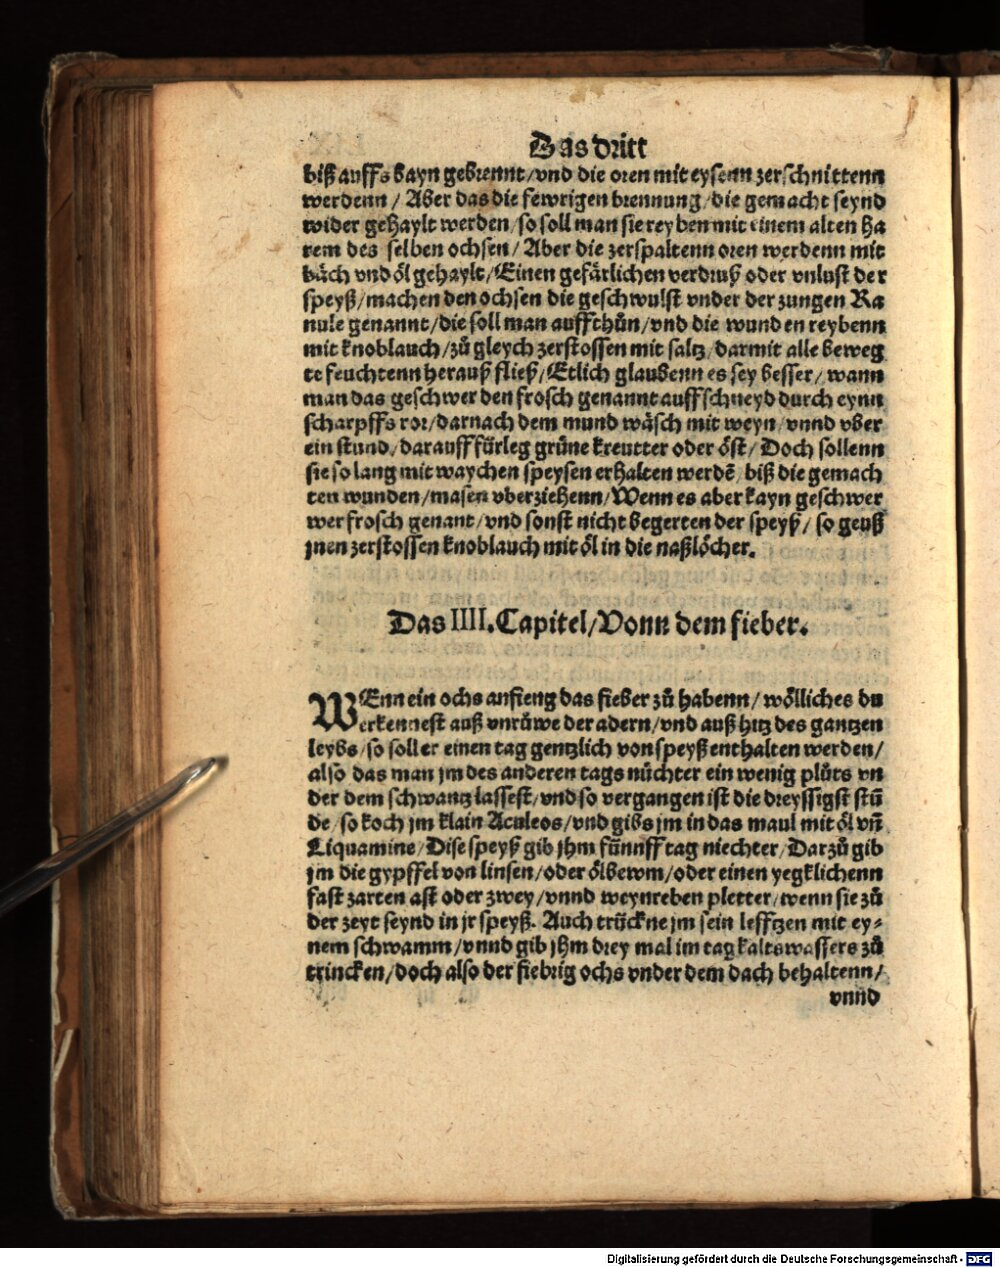 Das dritt
biß auffs bayn gebrennt/vnd die oren mit eysenn zerschnittenn
werdenn / Aber das die fewrigen brennung/die gemacht seynd
wider gehaylt werden/so soll man sie reyben mit einem alten ha
rem des selben ochsen/Aber die zerspaltenn oren werdenn mit
bäch vnd öl gehaylt/Einen gefärlichen verdruß oder vnlust der
speyß/machen den ochsen die geschwulst vnder der zungen Ra
nule genannt/die soll man auffthůn/vnd die wunden reybenn
mit knoblauch/zů gleych zerstossen mit saltz/darmit alle beweg
te feuchtenn herauß fließ/Etlich glaubenn es sey besser/wann
man das geschwer den frosch genannt auffschneyd durch eynn
scharpffs ror/darnach dem mund wäsch mit weyn/vnnd vber
ein stund/darauff fürleg grüne kreutter oder öst/Doch sollenn
sie so lang mit waychen speysen erhalten werdē/biß die gemach
ten wunden/masen vberziehenn/Wenn es aber kayn geschwer
wer frosch genant/vnd sonst nicht begerten der speyß/so geuß
jnen zerstossen knoblauch mit öl in die naßlöcher.
Das IIII. Capitel/Vonn dem fieber.
WEnn ein ochs anfieng das fieber zů habenn/wölliches du
erkennest auß vnrůwe der adern/vnd auß hitz des gantzen
leybs/so soll er einen tag gentzlich von speyß enthalten werden/
also das man jm des anderen tags nüchter ein wenig plůts vn
der dem schwantz lassest/vnd so vergangen ist die dreyssigst stū
de/so koch jm klain Aculeos/vnd gibs jm in das maul mit öl vn̄
Liquamine/Dise speyß gib jhm fünnff tag niechter/Darzů gib
jm die gypffel von linsen/oder ölbewm/oder einen yegklichenn
fast zarten ast oder zwey/vnnd weynreben pletter/wenn sie zů
der zeyt seynd in jr speyß. Auch trückne jm sein lefftzen mit ey⸗
nem schwamm/vnnd gib jhm drey mal im tag kalts wassers zů
trincken/doch also der fiebrig ochs vnder dem dach behaltenn/
vnnd
Digitalisierung gefördert durch die Deutsche Forschungsgemeinschaft - DFG